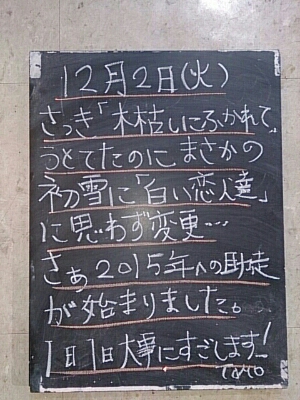 12月2日(火)
さっき「木枯しにふかれて」
つとてたのに まさかの
初雪に「白い恋人達」
に思わず変更…
さぁ2015年への助徒
が始まりました。
1日1日大事にすごします!